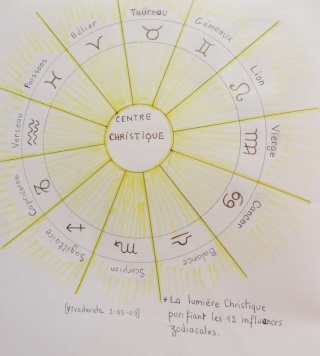 Taureau
Gemeaux
Lion
Vierge
Cancer
Balance
Scorpion
Sagittaire
Capricorne
Verseau
Poissons
Bélier
CENTRE
CHRISTIQUE
* La lumière Christique
purifiant les 12 influences
zodiacales.